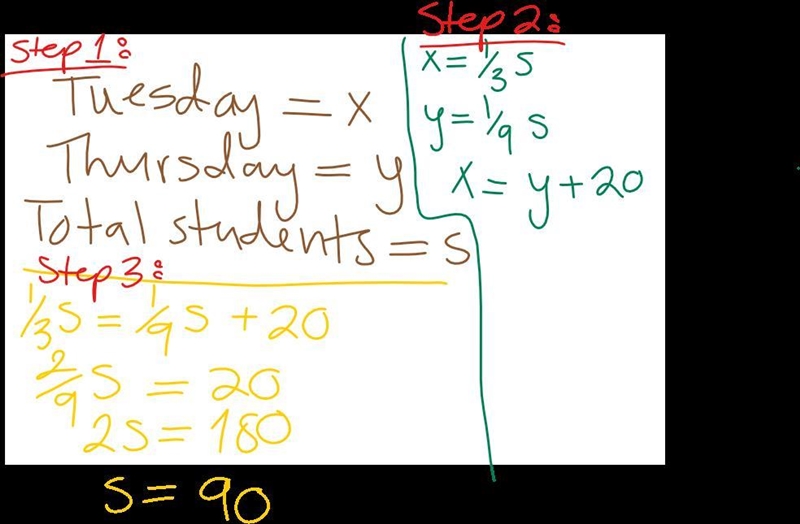 Step 1:
Tuesday = x
Thursday = y
Total students = s
Step 2:
x = 1/3 s
y = 1/9 s
x = y + 20
Step 3:
1/3 s = 1/9 s + 20
2/9 s = 20
2s = 180
s = 90